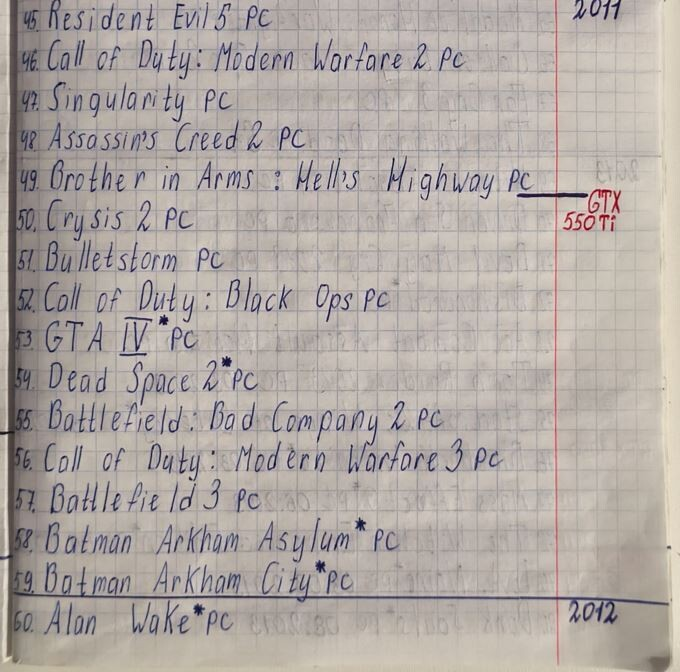 45. Resident Evil 5 PC 2011
46. Call of Duty: Modern Warfare 2 PC
47. Singularity PC
48 Assassin's Creed 2 PC
49. Brother in Arms: Hell's Highway PC
GTX
50. Crysis 2 PC 550 Ti
51. Bulletstorm PC
52. Call of Duty: Black Ops PC
53. GTA IV*PC
54. Dead Space 2*PC
55. Battlefield: Bad Company 2 PC
56. Call of Duty: Modern Warfare 3 PC
57. Battlefield 3 PC
58. Batman Arkham Asylum*PC
59. Batman Arkham City*PC
60. Alan Wake*PC 2012